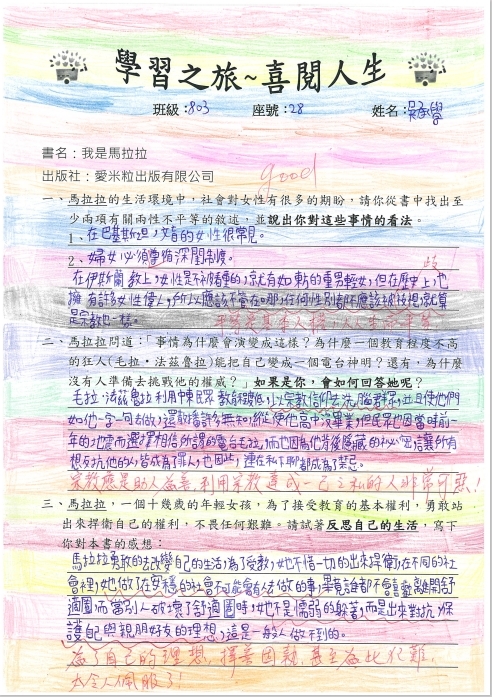 學習之旅~喜閱人生
班級:803 座號:28 姓名:吳承學
書名：我是馬拉拉
出版社：愛米粒出版有限公司
good
一、馬拉拉的生活環境中，社會對女性有很多的期盼，請你從書中找出至
少兩項有關兩性不平等的敘述，並說出你對這些事情的看法。
1、在巴基斯坦，文盲的女性很常見。
2、婦女必須遵循深閨制度。
在伊斯蘭教上，女性是不被尊重的，就有如 的重男輕女，但在歷史上，也
擁有許多女性偉人，所以應該不管在哪，任何性別都不應該被歧視，就算
是宗教也一樣。
歧！
二、馬拉拉問道：「事情為什麼會演變成這樣？為什麼一個教育程度不高
的狂人（毛拉‧法茲魯拉）能把自己變成一個電台神明？還有，為什麼
沒有人準備去挑戰他的權威？」如果是你，會如何回答她呢？
毛拉‧法茲魯拉利用中東民眾教育程度低，以宗教信仰去洗腦群眾，並且使他們
如他一字一句去做，還散播許多無知，縱使他高中沒畢業，但民眾也因當時前一
年的地震而選擇相信所謂的電台毛拉，而也因為他背後隱藏的秘密，讓所有
想反抗他的人皆成為「罪人」，也因此，連在私下聊都成為了禁忌。
宗教應是助人為善，利用宗教達成一己之私的人非常可惡！
三、馬拉拉，一個十幾歲的年輕女孩，為了接受教育的基本權利，勇敢站
出來捍衛自己的權利，不畏任何艱難。請試著反思自己的生活，寫下
你對本書的感想：
馬拉拉勇敢的去改變自己的生活，為了受教，她不惜一切的出來捍衛，在不同的社
會裡，她做了在安穩的社會不可能會有人去做的事，畢竟誰都不會喜歡離開舒
適圈，而當別人破壞了舒適圈時，她不是懦弱的躲著，而是出來對抗，保
護自己與親朋好友的理想，這是一般人做不到的。
為了自己的理想，擇善固執，甚至為此犯難，
太令人佩服了！